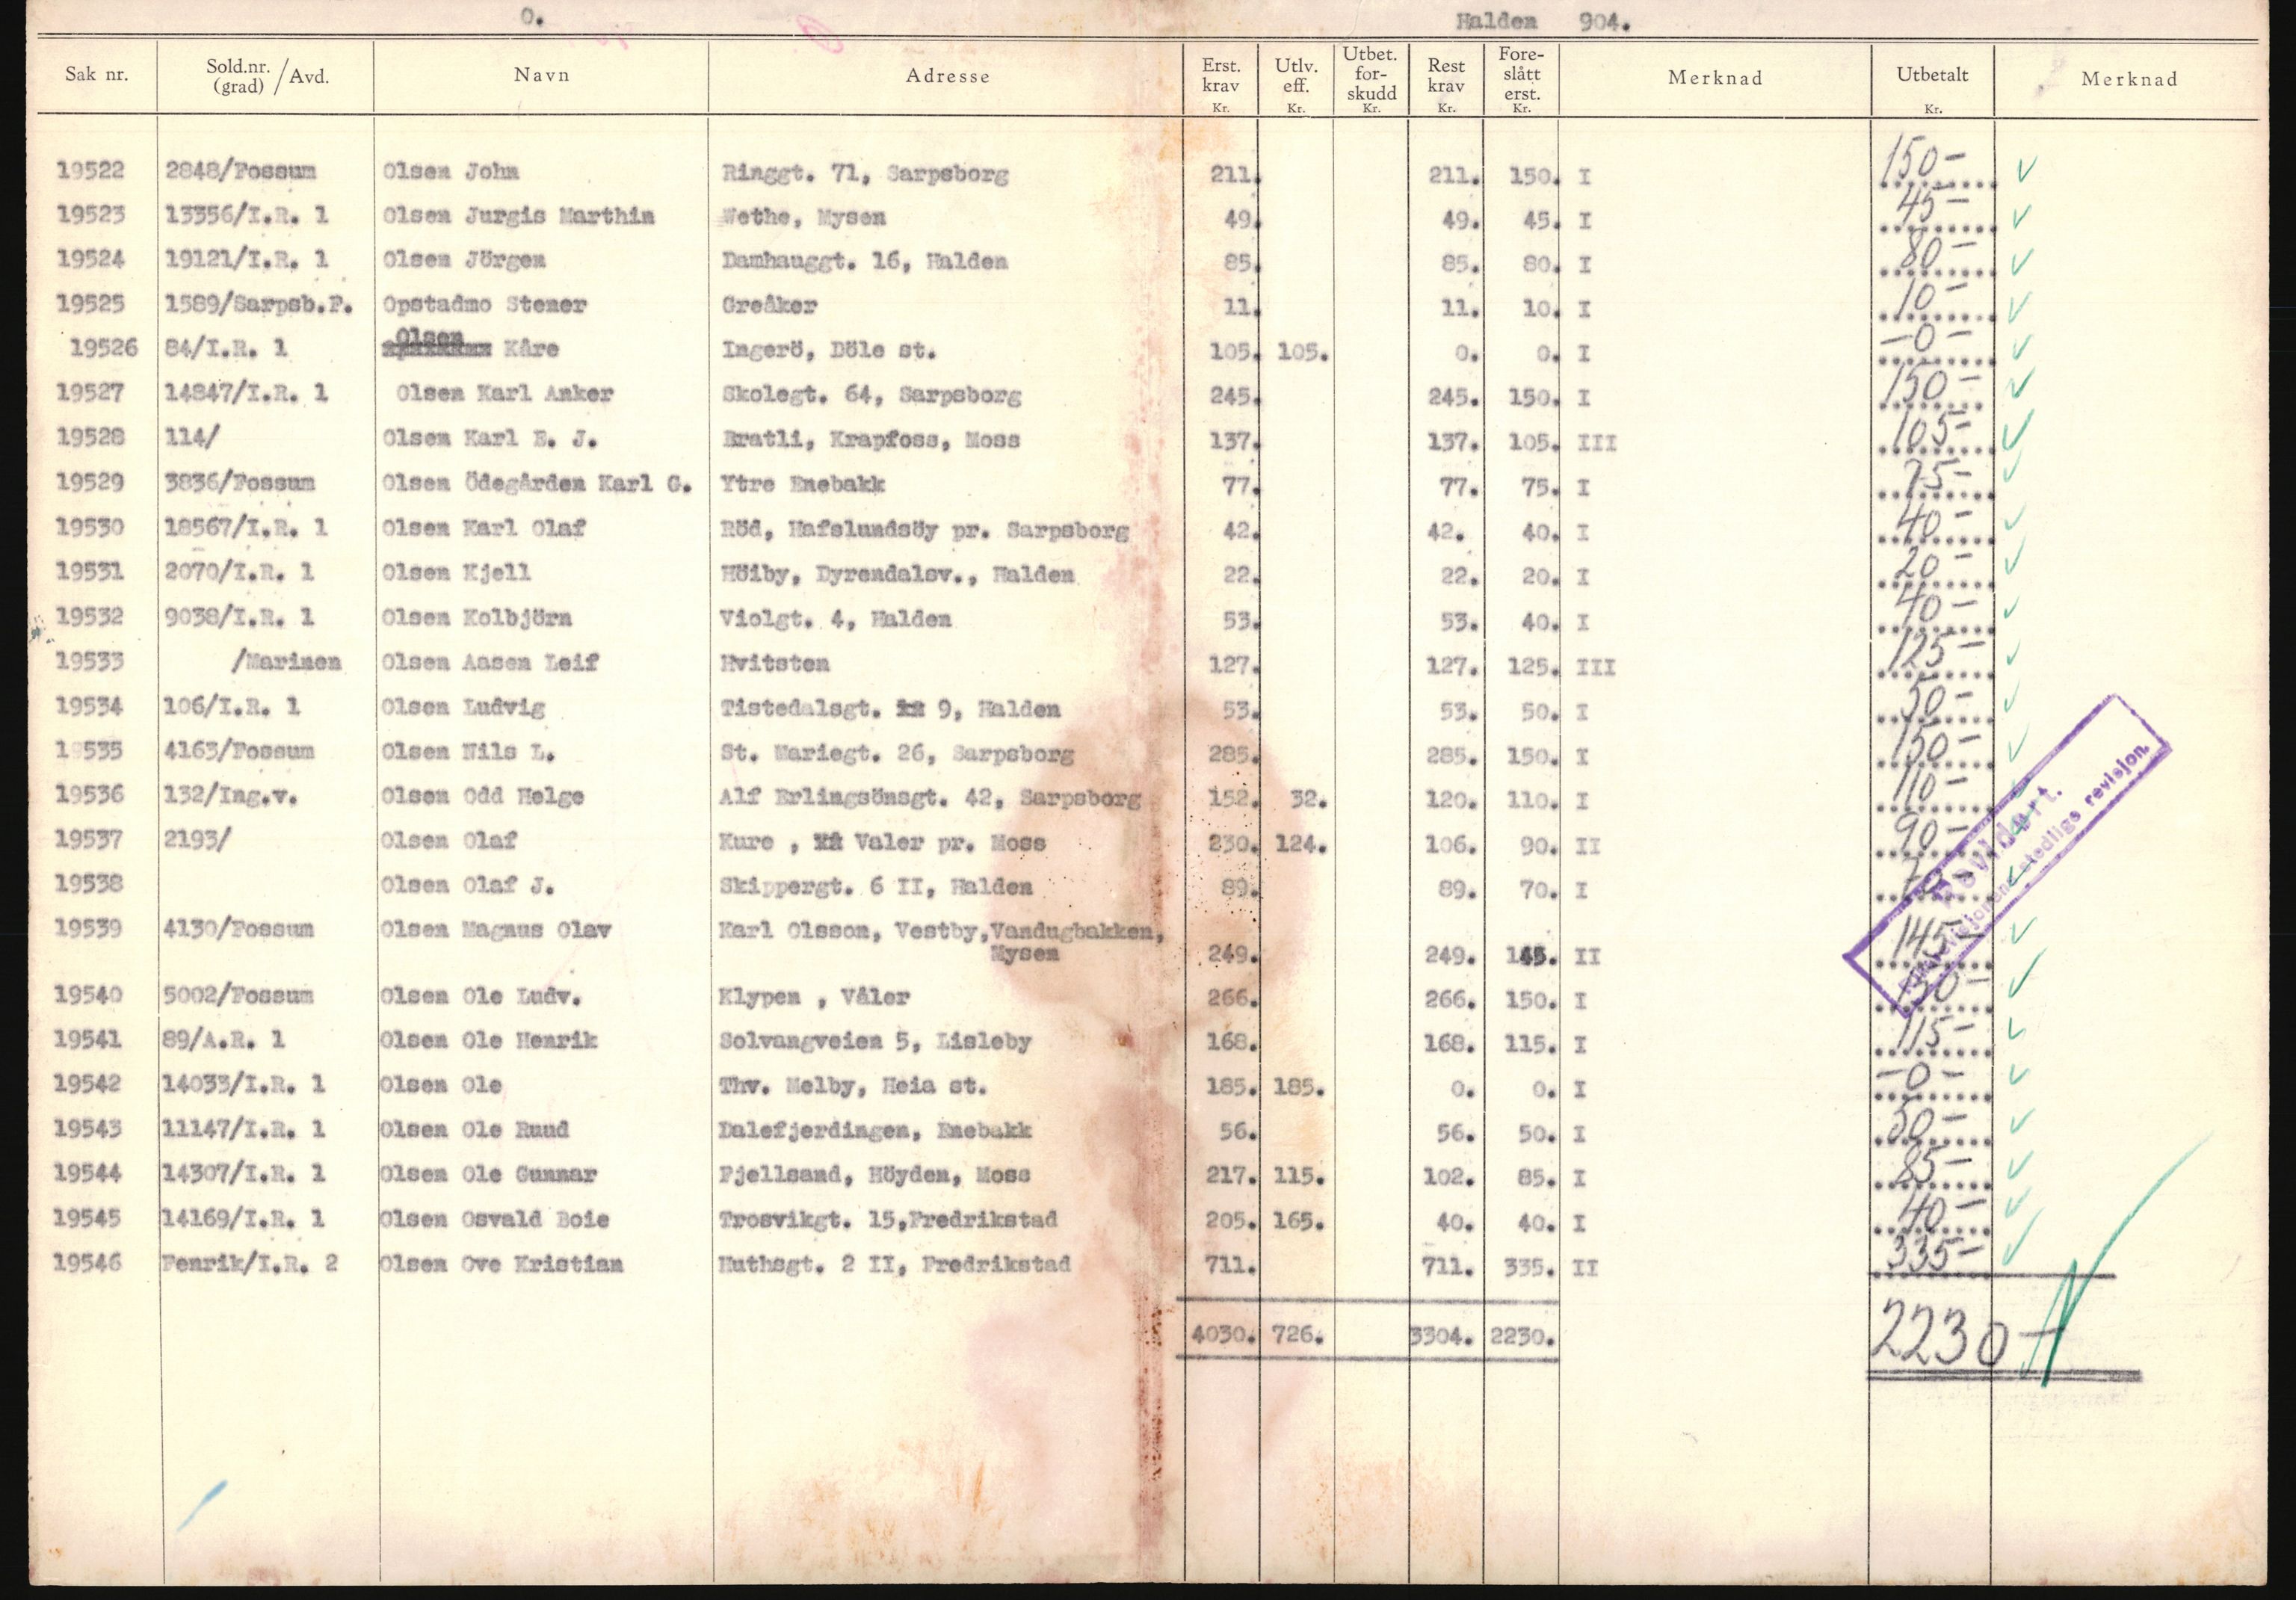 O. Halden 904.
Sak nr. Sold.nr. (grad) / Avd. Navn Adresse Erst. krav Kr. Utlv. eff. Kr. Utbet. for- skudd Kr. Rest krav Kr. Fore- slått erst. Kr. Merknad Utbetalt Kr. Merknad
19522 2848/Fossum Olsen John Ringgt. 71, Sarpsborg 211. 211. 150. I 150-
19523 13356/I.R. 1 Olsen Jurgis Marthin Wethe, Mysen 49. 49. 45. I 45-
19524 19121/I.R. 1 Olsen Jörgen Damhauggt. 16, Halden 85. 85. 80. I 80-
19525 1589/Sarpsb.F. Opstadmo Stener Greåker 11. 11. 10. I 10-
19526 84/I.R. 1 Olsen Kåre Ingerö, Döle st. 105. 105. 0. 0. I -0-
19527 14847/I.R. 1 Olsen Karl Anker Skolegt. 64, Sarpsborg 245. 245. 150. I 150-
19528 114/ Olsen Karl E. J. Bratli, Krapfoss, Moss 137. 137. 105. III 105-
19529 3836/Fossum Olsen Ödegården Karl G. Ytre Enebakk 77. 77. 75. I 75-
19530 18567/I.R. 1 Olsen Karl Olaf Röd, Hafslundsöy pr. Sarpsborg 42. 42. 40. I 40-
19531 2070/I.R. 1 Olsen Kjell Höiby, Dyrendalsv., Halden 22. 22. 20. I 20-
19532 9038/I.R. 1 Olsen Kolbjörn Violgt. 4, Halden 53. 53. 40. I 40-
19533 /Marinen Olsen Aasen Leif Hvitsten 127. 127. 125. III 125-
19534 106/I.R. 1 Olsen Ludvig Tistedalsgt. 9, Halden 53. 53. 50. I 50-
19535 4163/Fossum Olsen Nils L. St. Mariegt. 26, Sarpsborg 285. 285. 150. I 150-
19536 132/Ing.v. Olsen Odd Helge Alf Erlingsönsgt. 42, Sarpsborg 152. 32. 120. 110. I 110-
19537 2193/ Olsen Olaf Kure , Valer pr. Moss 230. 124. 106. 90. II 90-
19538 Olsen Olaf J. Skippergt. 6 II, Halden 89. 89. 70. I
19539 4130/Fossum Olsen Magnus Olav Karl Olsson, Vestby,Vandugbakken,
Mysen 249. 249. 145. II 145-
19540 5002/Fossum Olsen Ole Ludv. Klypen , Våler 266. 266. 150. I
19541 89/A.R. 1 Olsen Ole Henrik Solvangveien 5, Lisleby 168. 168. 115. I 115-
19542 14033/I.R. 1 Olsen Ole Thv. Melby, Heia st. 185. 185. 0. 0. I -0-
19543 11147/I.R. 1 Olsen Ole Ruud Dalefjerdingen, Enebakk 56. 56. 50. I 50-
19544 14307/I.R. 1 Olsen Ole Gunnar Fjellsand, Höyden, Moss 217. 115. 102. 85. I 85-
19545 14169/I.R. 1 Olsen Osvald Boie Trosvikgt. 15,Fredrikstad 205. 165. 40. 40. I 40-
19546 Fenrik/I.R. 2 Olsen Ove Kristian Huthsgt. 2 II, Fredrikstad 711. 711. 335. II 335-
4030. 726. 3304. 2230. 2230-
revisjon.